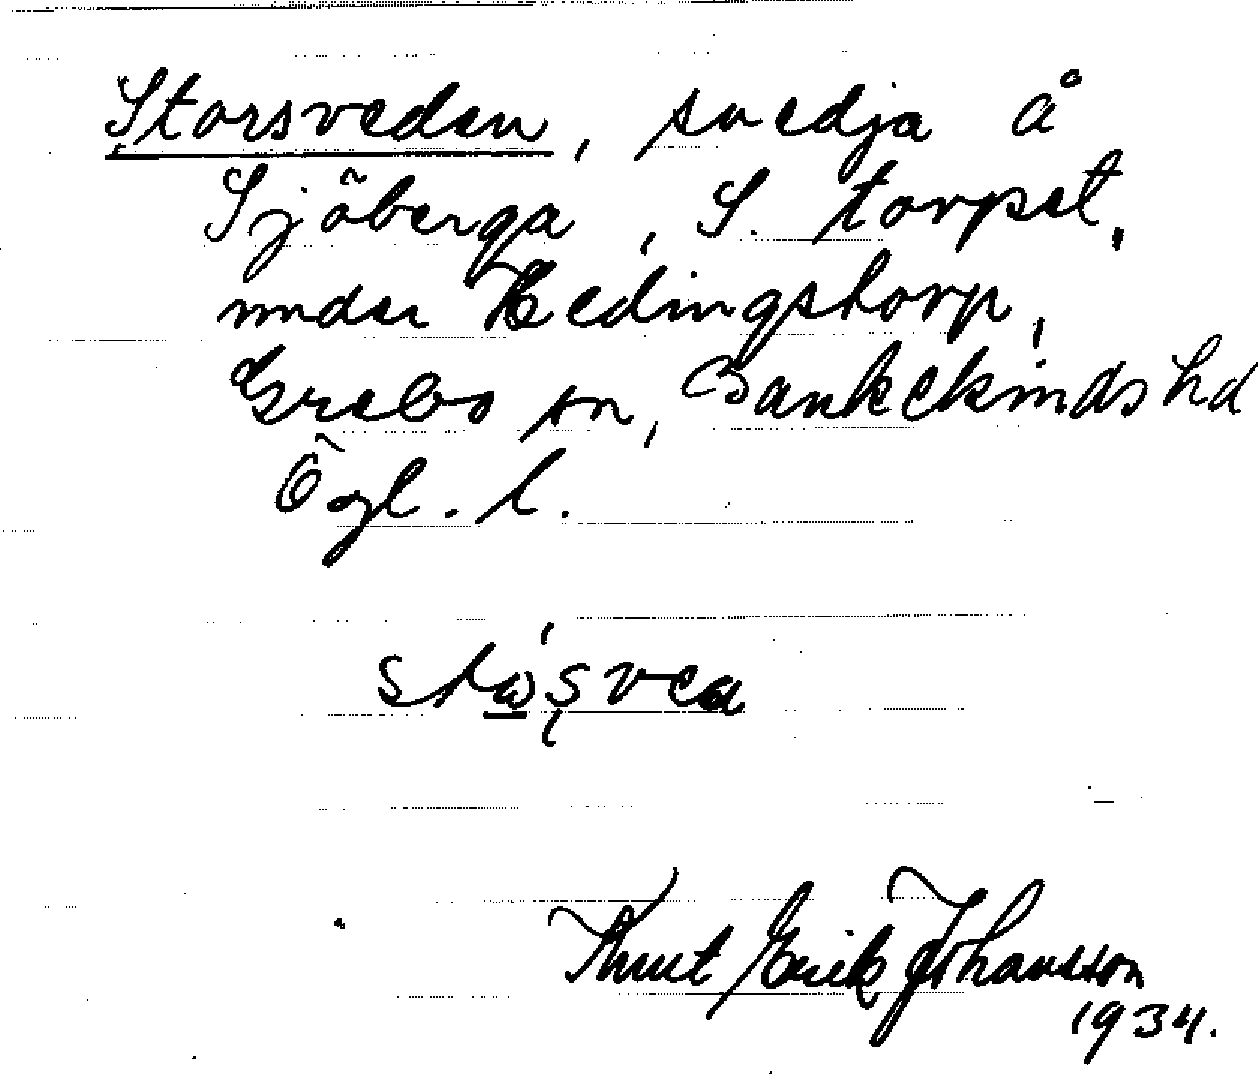 Storsveden, svedja å
Sjöberga, S. torpet,
under Hedingstorp,
Grebo sn, Bankekinds hd
Ögl. l.
Knut Erik Johansson
1934.